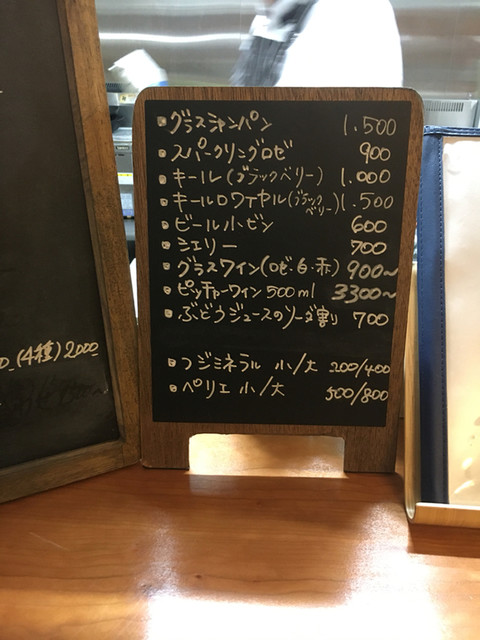 グラスシャンパン 1.500
スパークリングロゼ 900
キール(ブラックベリー) 1.000
キールロワイヤル(ブラックベリー) 1.500
ビール小ビン 600
シェリー 700
グラスワイン(ロゼ・白・赤) 900~
ピッチャーワイン 500ml 3300~
ぶどうジュースのソーダ割り 700
フジミネラル 小/大 200/400
ペリエ 小/大 500/800
(4種) 2000